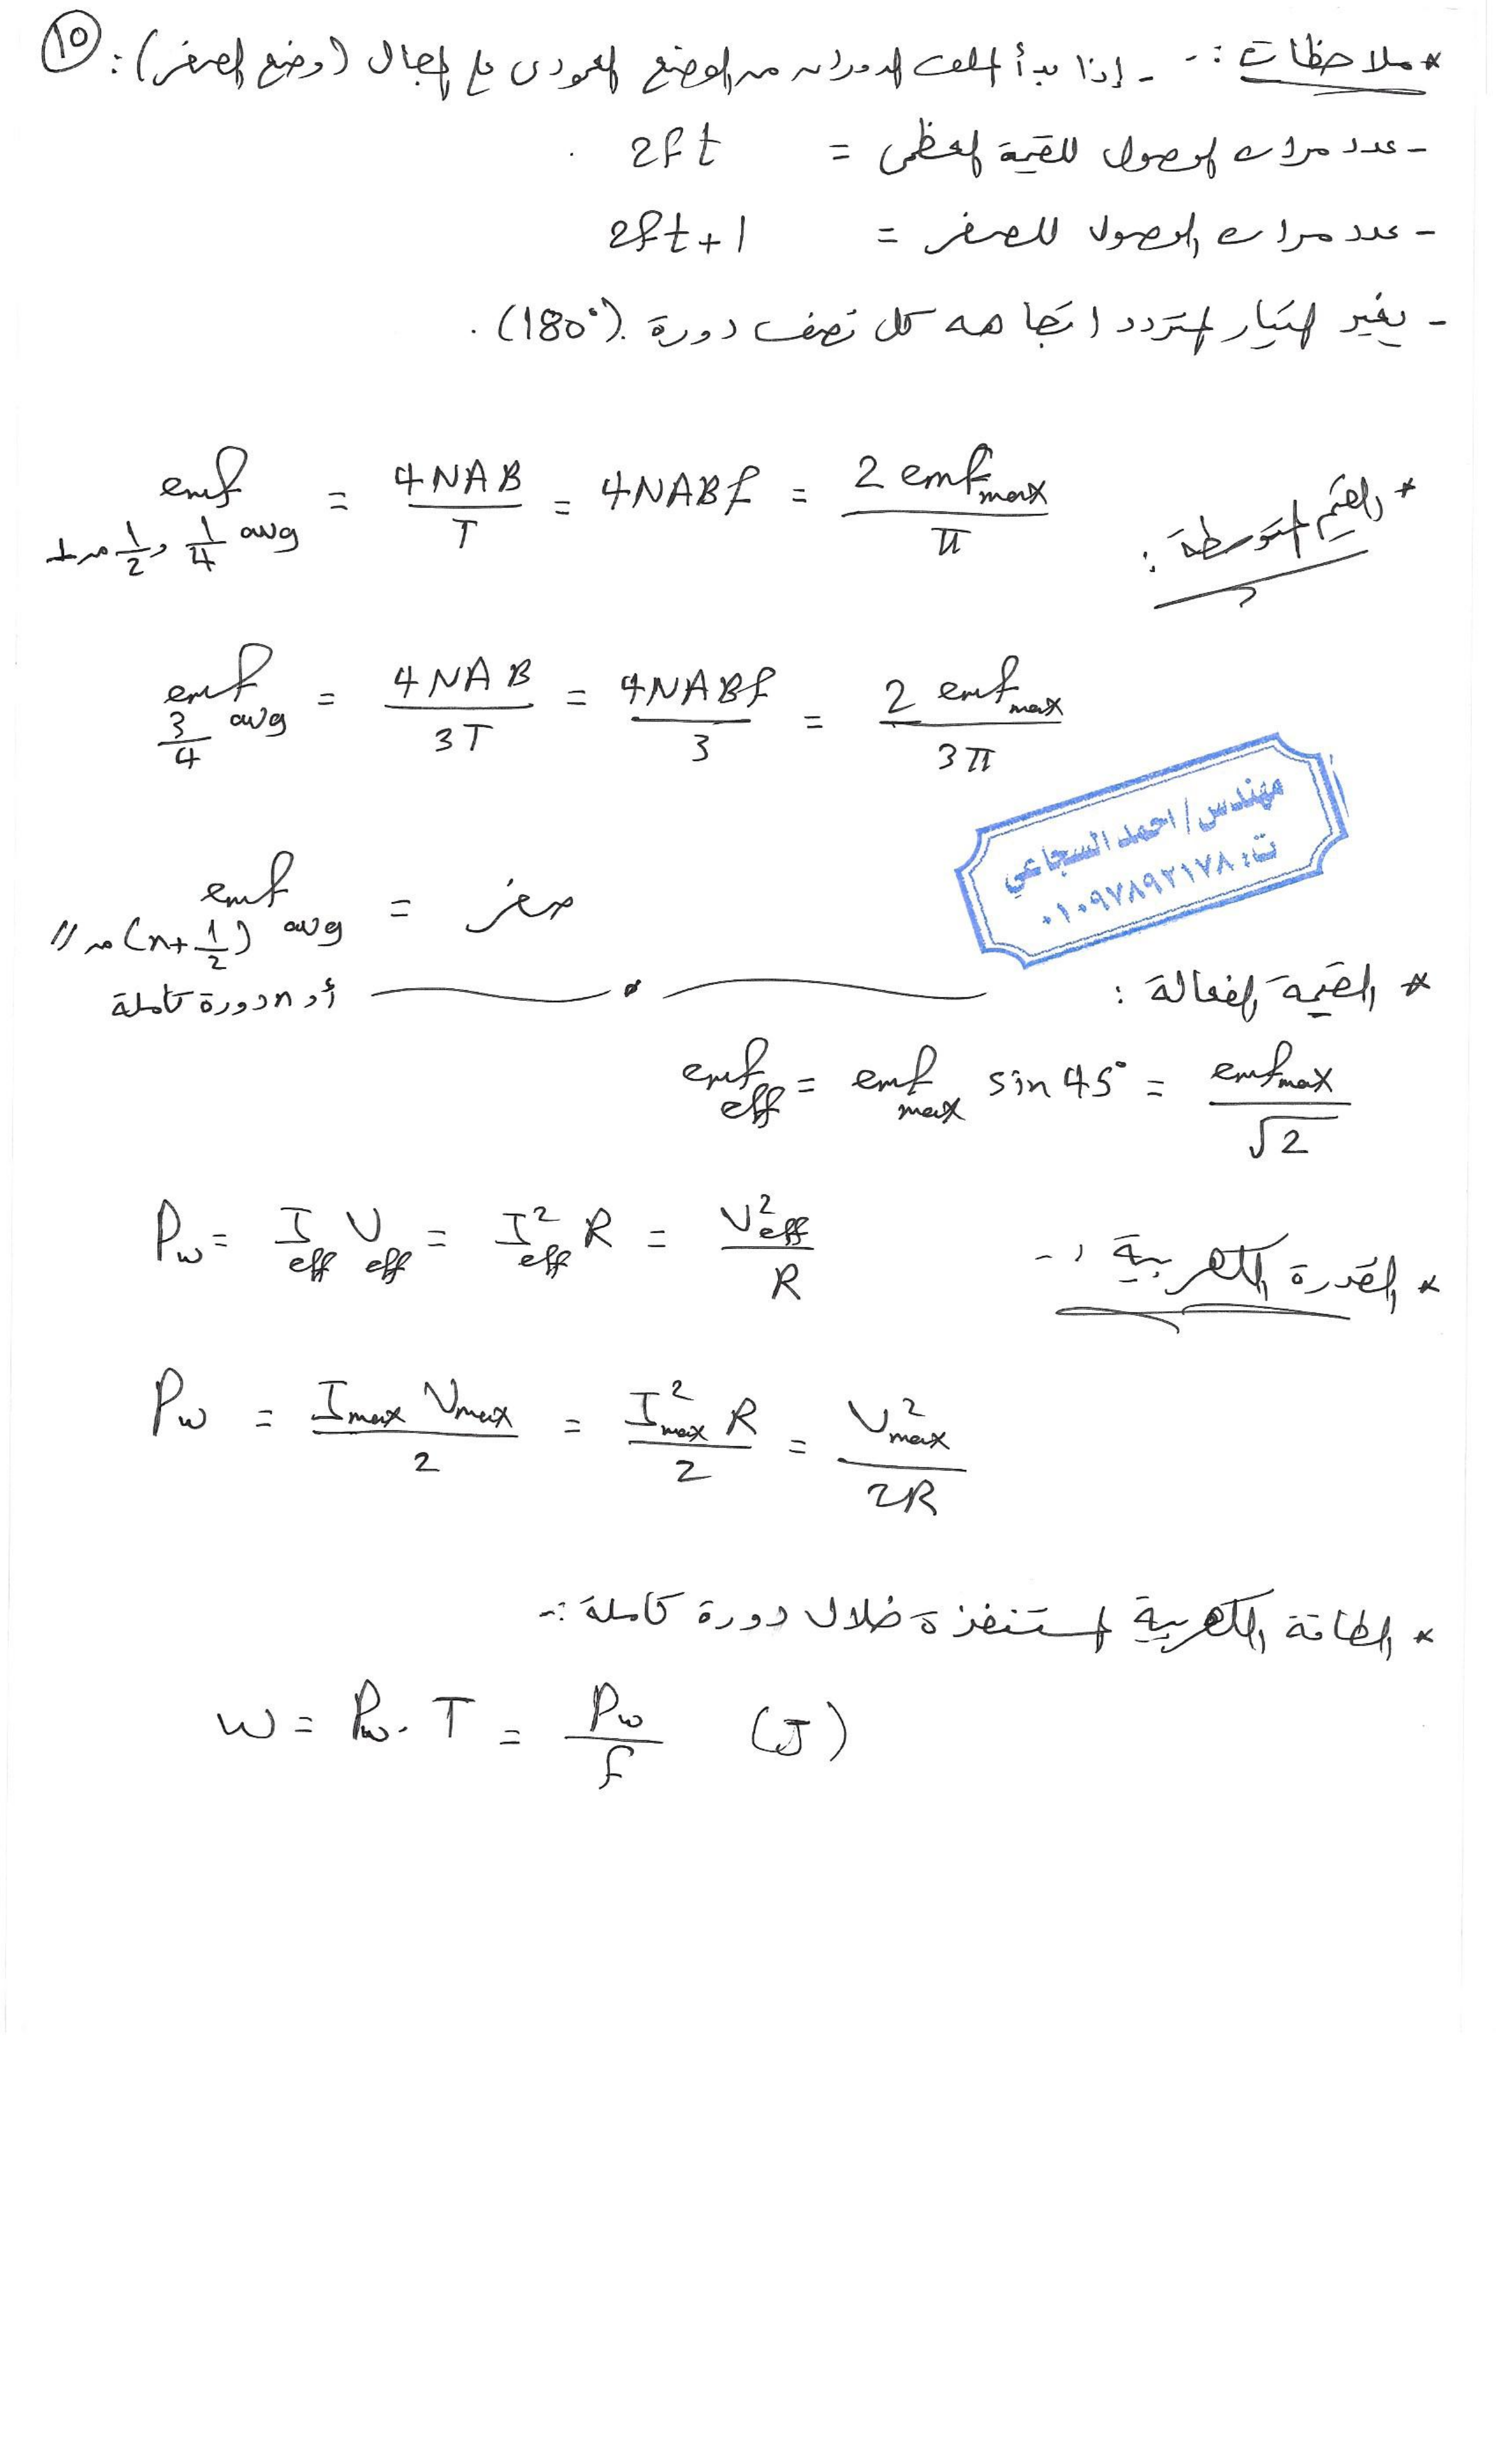 ١٥
* ملاحظات :- - إذا بدأ الملف الدوران من الوضع العمودى على المجال (وضع الصفر) :
- عدد مرات الوصول للقيمة العظمى = 2ft
- عدد مرات الوصول للصفر = 2ft+1
- يغير التيار المتردد اتجاهه كل نصف دورة (180°).
* القيم المتوسطة :
emf avg 1/4 و 1/2 من ⊥ = 4NAB / T = 4NABf = 2 emf max / π
emf avg 3/4 = 4NAB / 3T = 4NABf / 3 = 2 emf max / 3π
مهندس/ احمد السجاعي
ت: ٠١٠٩٧٨٩٢١٧٨
emf avg (n+1/2) من // = صفر
أو n دورة كاملة
* القيمة الفعالة :
emf eff = emf max sin 45° = emf max / √2
* القدرة الكهربية :-
Pw = I eff V eff = I² eff R = V² eff / R
Pw = I max V max / 2 = I² max R / 2 = V² max / 2R
* الطاقة الكهربية المستنفذة خلال دورة كاملة :-
W = Pw . T = Pw / f (J)